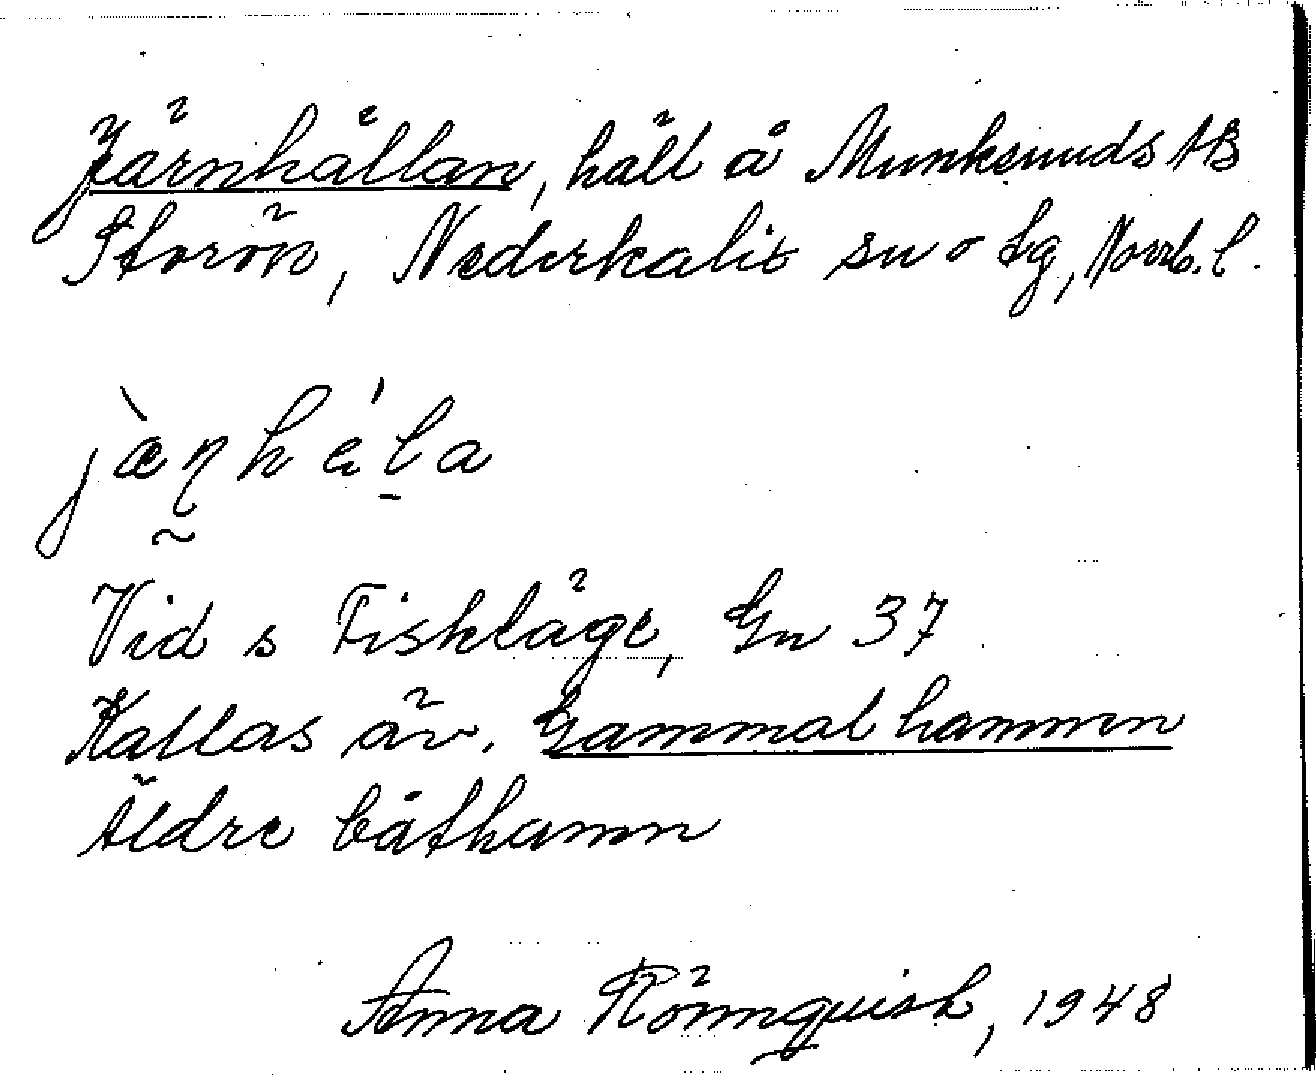 Järnhällan, häll å Munksunds AB
Storön, Nederkalix sn o tg, Norrb. l.
Vid s Fiskläge, Gn 37
Kallas äv. Gammalhamnen
Äldre båthamn
Anna Rönnquist, 1948